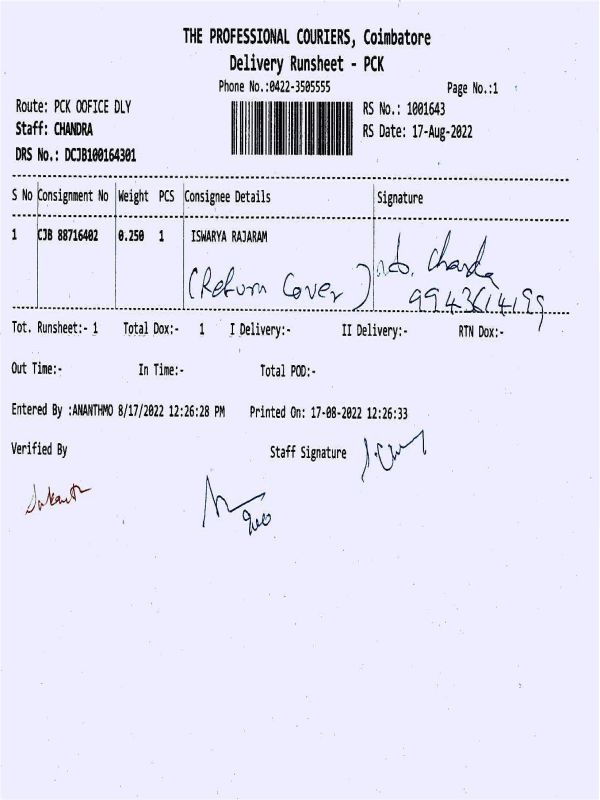 THE PROFESSIONAL COURIERS, Coimbatore
Delivery Runsheet - PCK
Phone No.:0422-3505555 Page No.:1
Route: PCK OOFICE DLY RS No.: 1001643
Staff: CHANDRA RS Date: 17-Aug-2022
DRS No.: DCJB100164301
S No Consignment No Weight PCS Consignee Details Signature
1 CJB 88716402 0.250 1 ISWARYA RAJARAM
(Return Cover)
Tot. Runsheet:- 1 Total Dox:- 1 I Delivery:- II Delivery:- RTN Dox:-
Out Time:- In Time:- Total POD:-
Entered By :ANANTHMO 8/17/2022 12:26:28 PM Printed On: 17-08-2022 12:26:33
Verified By Staff Signature